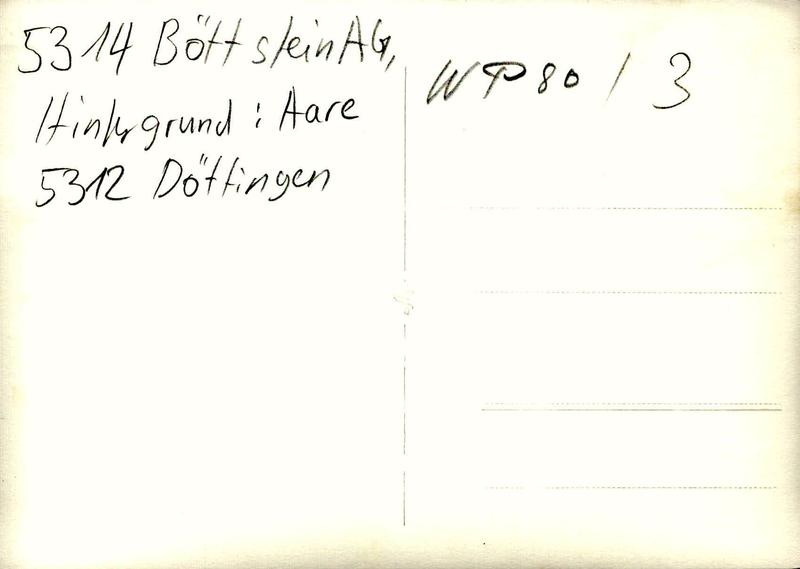 5314 Böttstein AG,
Hintergrund : Aare
5312 Döttingen
WP 80 / 3